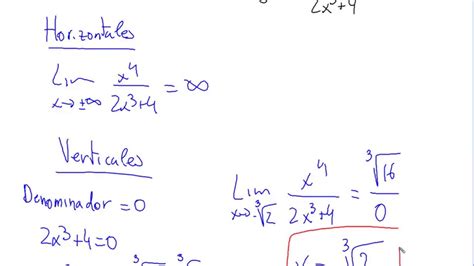 2x³+4
Horizontales
Lim x→±∞ x⁴/(2x³+4) = ∞
Verticales
Denominador = 0
2x³+4=0
Lim x→-³√2 x⁴/(2x³+4) = ³√16/0
³√2